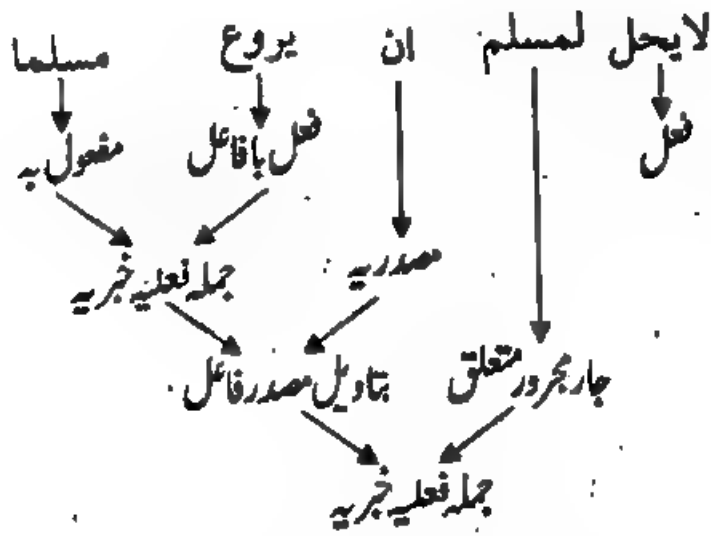 لا يحل لمسلم ان يروع مسلما
فعل فعل بافاعل مفعول بہ
مصدریہ جملہ فعلیہ خبریہ
جار مجرور متعلق بتاویل مصدر فاعل
جملہ فعلیہ خبریہ